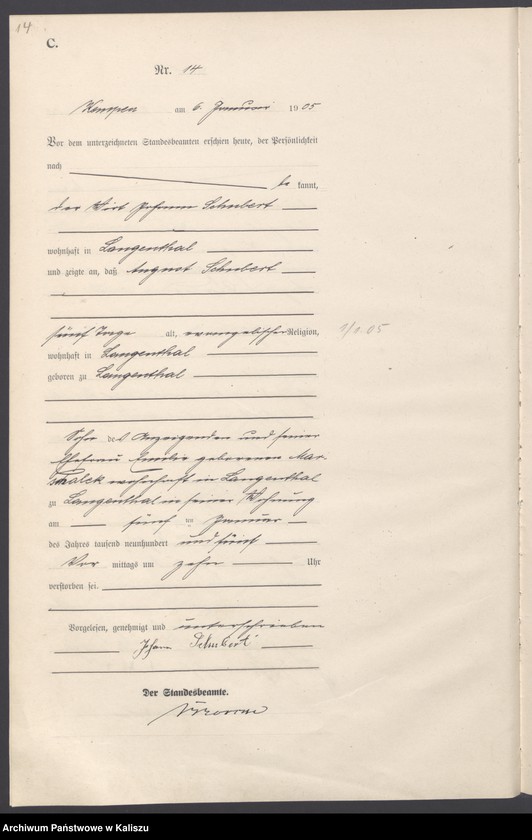 14
C.
Nr. 14
Kempen am 6. Januar 1905
Vor dem unterzeichneten Standesbeamten erschien heute, der Persönlichkeit
nach
be kannt,
der Wirt Johann Schubert
wohnhaft in Langenthal
und zeigte an, daß August Schubert
fünf Tage alt, evangelischer Religion,
1/1.05
wohnhaft in Langenthal
geboren zu Langenthal
Sohn des Anzeigenden und seiner
Ehefrau Emilie geborenen Mar-
schalek wohnhaft in Langenthal
zu Langenthal in seiner Wohnung
am fünf ten Januar
des Jahres tausend neunhundert und fünf
Vor mittags um zehn Uhr
verstorben sei.
Vorgelesen, genehmigt und unterschrieben
Johann Schubert
Der Standesbeamte.
Archiwum Państwowe w Kaliszu